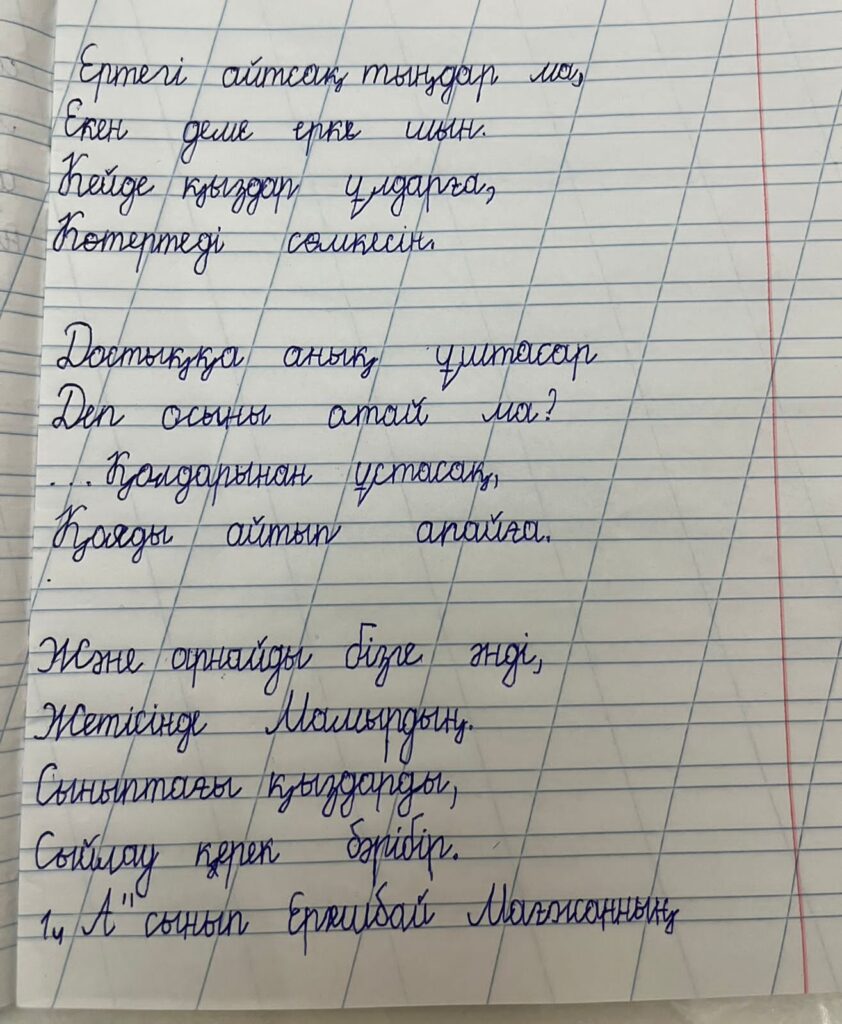 Ертегі айтсақ тыңдар ма,
Екен деме ерке шын.
Кейде қыздар ұлдарға,
Көтертеді сөмкесін.
Достыққа анық ұштасар
Деп осыны атай ма?
...Қолдарынан ұстасақ,
Қояды айтып апайға.
Және арнайды бізге әнді,
Жетісінде Мамырдың.
Сыныптағы қыздарды,
Сыйлау қерек бәрібір.
1„А" сынып Ершібай Мағжанның